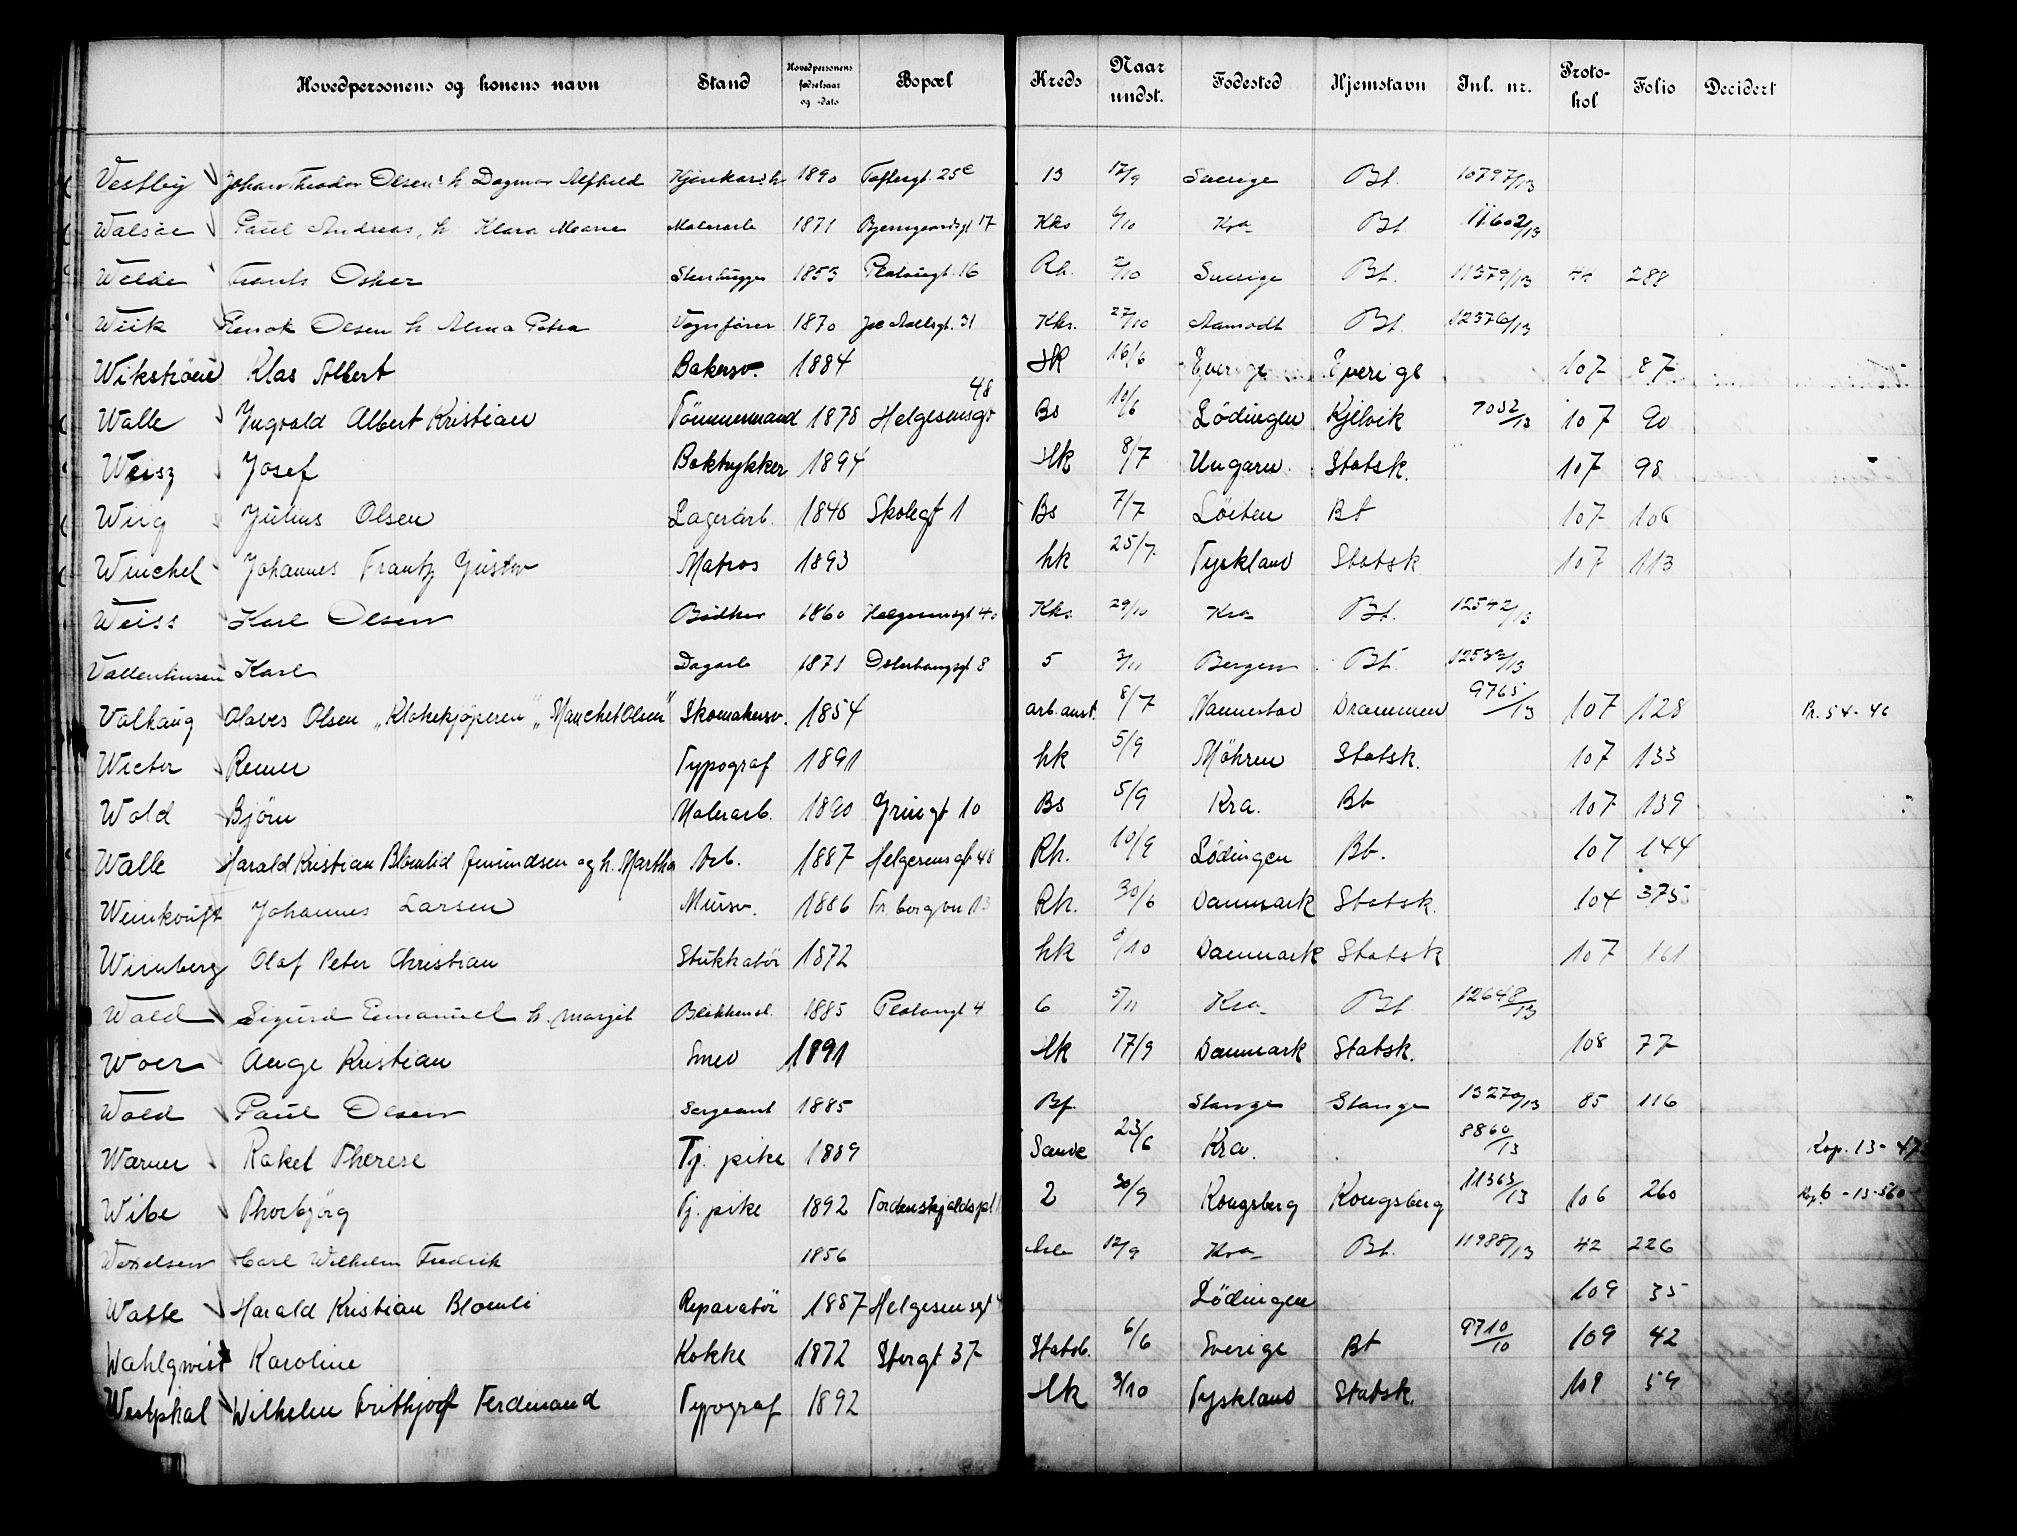 Hovedpersonens og konens navn Stand Hovedpersonens fødselsaar og -dato Bopæl Kreds Naar undst. Fødested Hjemstavn Inl. nr. Protokol Folio Decidert
Vestby Johan Theodor Olsen h Dagmar Alfhild 1890 Toftesgt. 25c 13 17/9 Sverige Bt. 10797/13
Paul Andreas, h Klara Malerarb 1871 17 Kks 6/10 Kra Bt. 11602/13
Welde Frants Oskar Stenhugger 1853 Platousgt. 16 Rh. 2/10 Sverige Bt. 11379/13 288
Wiik Olsen h Alma Petra Vognfører 1870 31 Kks. 27/10 Bt. 12376/13
Wikstrøm Klas Albert Bakersv. 1884 Hk 16/6 Sverige Sverige 107 87
Walle Ingvald Albert Kristian Tömmermand 1878 Helgesensgt 48 Bs 10/6 Lödingen Kjelvik 7052/13 107 90
Weisz Josef Boktrykker 1894 Hk 8/7 Ungarn. Statsk. 107 98
Wiig Julius Olsen Lagerarb. 1846 Skolegt 1 Bs 7/7 Löiten Bt 107 106
Winchel Johannes Frantz Gustav Matros 1893 hk 25/7 Tyskland Statsk 107 113
Weiss Karl Olsen Bødker 1860 Helgesensgt 40 Kks. 29/10 Kra Bt. 12542/13
Karl Dagarb 1871 8 5 3/11 Bergen Bt.
Valhaug Olaves Olsen „Klokekjøperen" „Manchet Olsen" Skomakersv. 1854 arb. anst. 8/7 Nannestad Drammen 9765/13 107 128 Pr. 54-46
Wictor Typograf 1891 hk 5/9 Möhren Statsk. 107 133
Wold Bjørn Malerarb. 1890 Grüngt 10 Bs 5/9 Kra. Bt 107 139
Walle Harald Kristian Blomlid og h. Martha Arb. 1887 Helgesensgt 48 Rh. 10/9 Lödingen Bt. 107 144
Johannes Larsen Mursv. 1886 Rh. 30/6 Danmark Statsk. 104 375
Olaf Peter Christian Stukkatör 1872 hk 8/10 Danmark Statsk 107 161
Wold Sigurd Emanuel h. Margit 1885 Platougt 4 6 5/11 Kra Bt 12648/13
Woer Aage Kristian Smed 1891 Hk 17/9 Danmark Statsk. 108 77
Wold Paul Olsen Sergeant 1885 Stange Stange 13270/13 85 116
Warner Rakel Therese Tj. pike 1889 Sande 23/6 Kra. 8860/13 Kop. 13-47
Wibe Thorbjörg Tj. pike 1892 Tordenskjoldspl 2 30/9 Kongsberg Kongsberg 11363/13 106 260
Wexelsen Carl Wilhelm Fredrik 1856 12/9 Kra Bt. 11988/13 42 226
Walle Harald Kristian Blomli Reparatör 1887 Helgesensgt Lödingen 109 35
Wahlqwist Karoline Kokke 1872 Storgt 37 Statsb. 6/6 Sverige Bt 9710/10 109 42
Westphal Wilhelm Frithjof Ferdinand Typograf 1892 Hk 3/10 Tyskland Statsk. 109 59